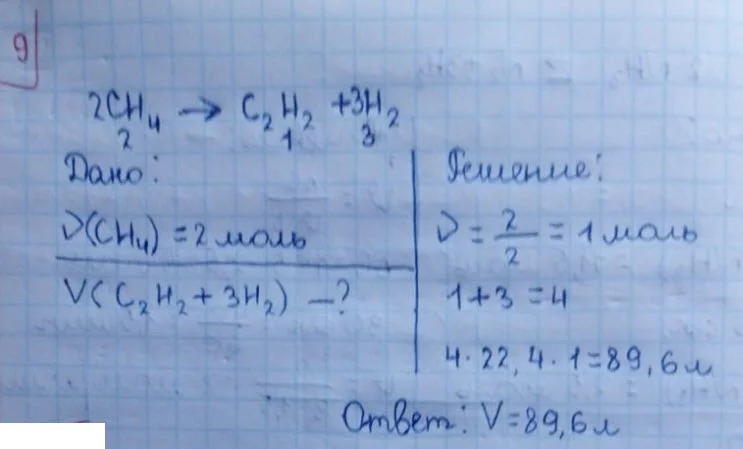 9
2CH₄ → C₂H₂ + 3H₂
2 1 3
Дано:
ν(CH₄) = 2 моль
V(C₂H₂ + 3H₂) – ?
Решение:
ν = 2/2 = 1 моль
1+3 = 4
4 · 22,4 · 1 = 89,6 л
Ответ: V = 89,6 л